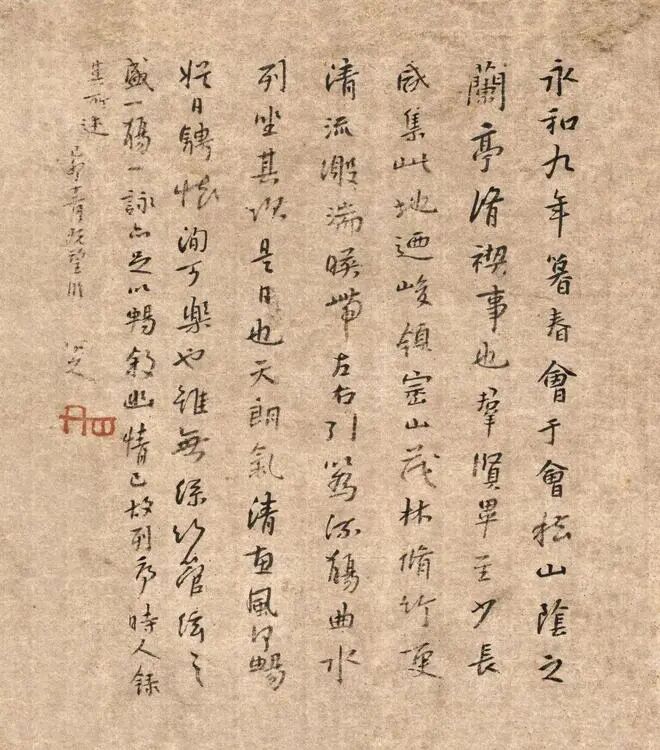 永和九年暮春會于會稽山陰之
蘭亭脩禊事也羣賢畢至少長
咸集此地迺峻領崇山茂林脩竹更
清流激湍暎帶左右引以為流觴曲水
列坐其次是日也天朗氣清惠風和暢
娛目騁懷洵可樂也雖無絲竹管絃之
盛一觴一詠亦足以暢敘幽情已故列序時人錄
其所述 既望 八大山人